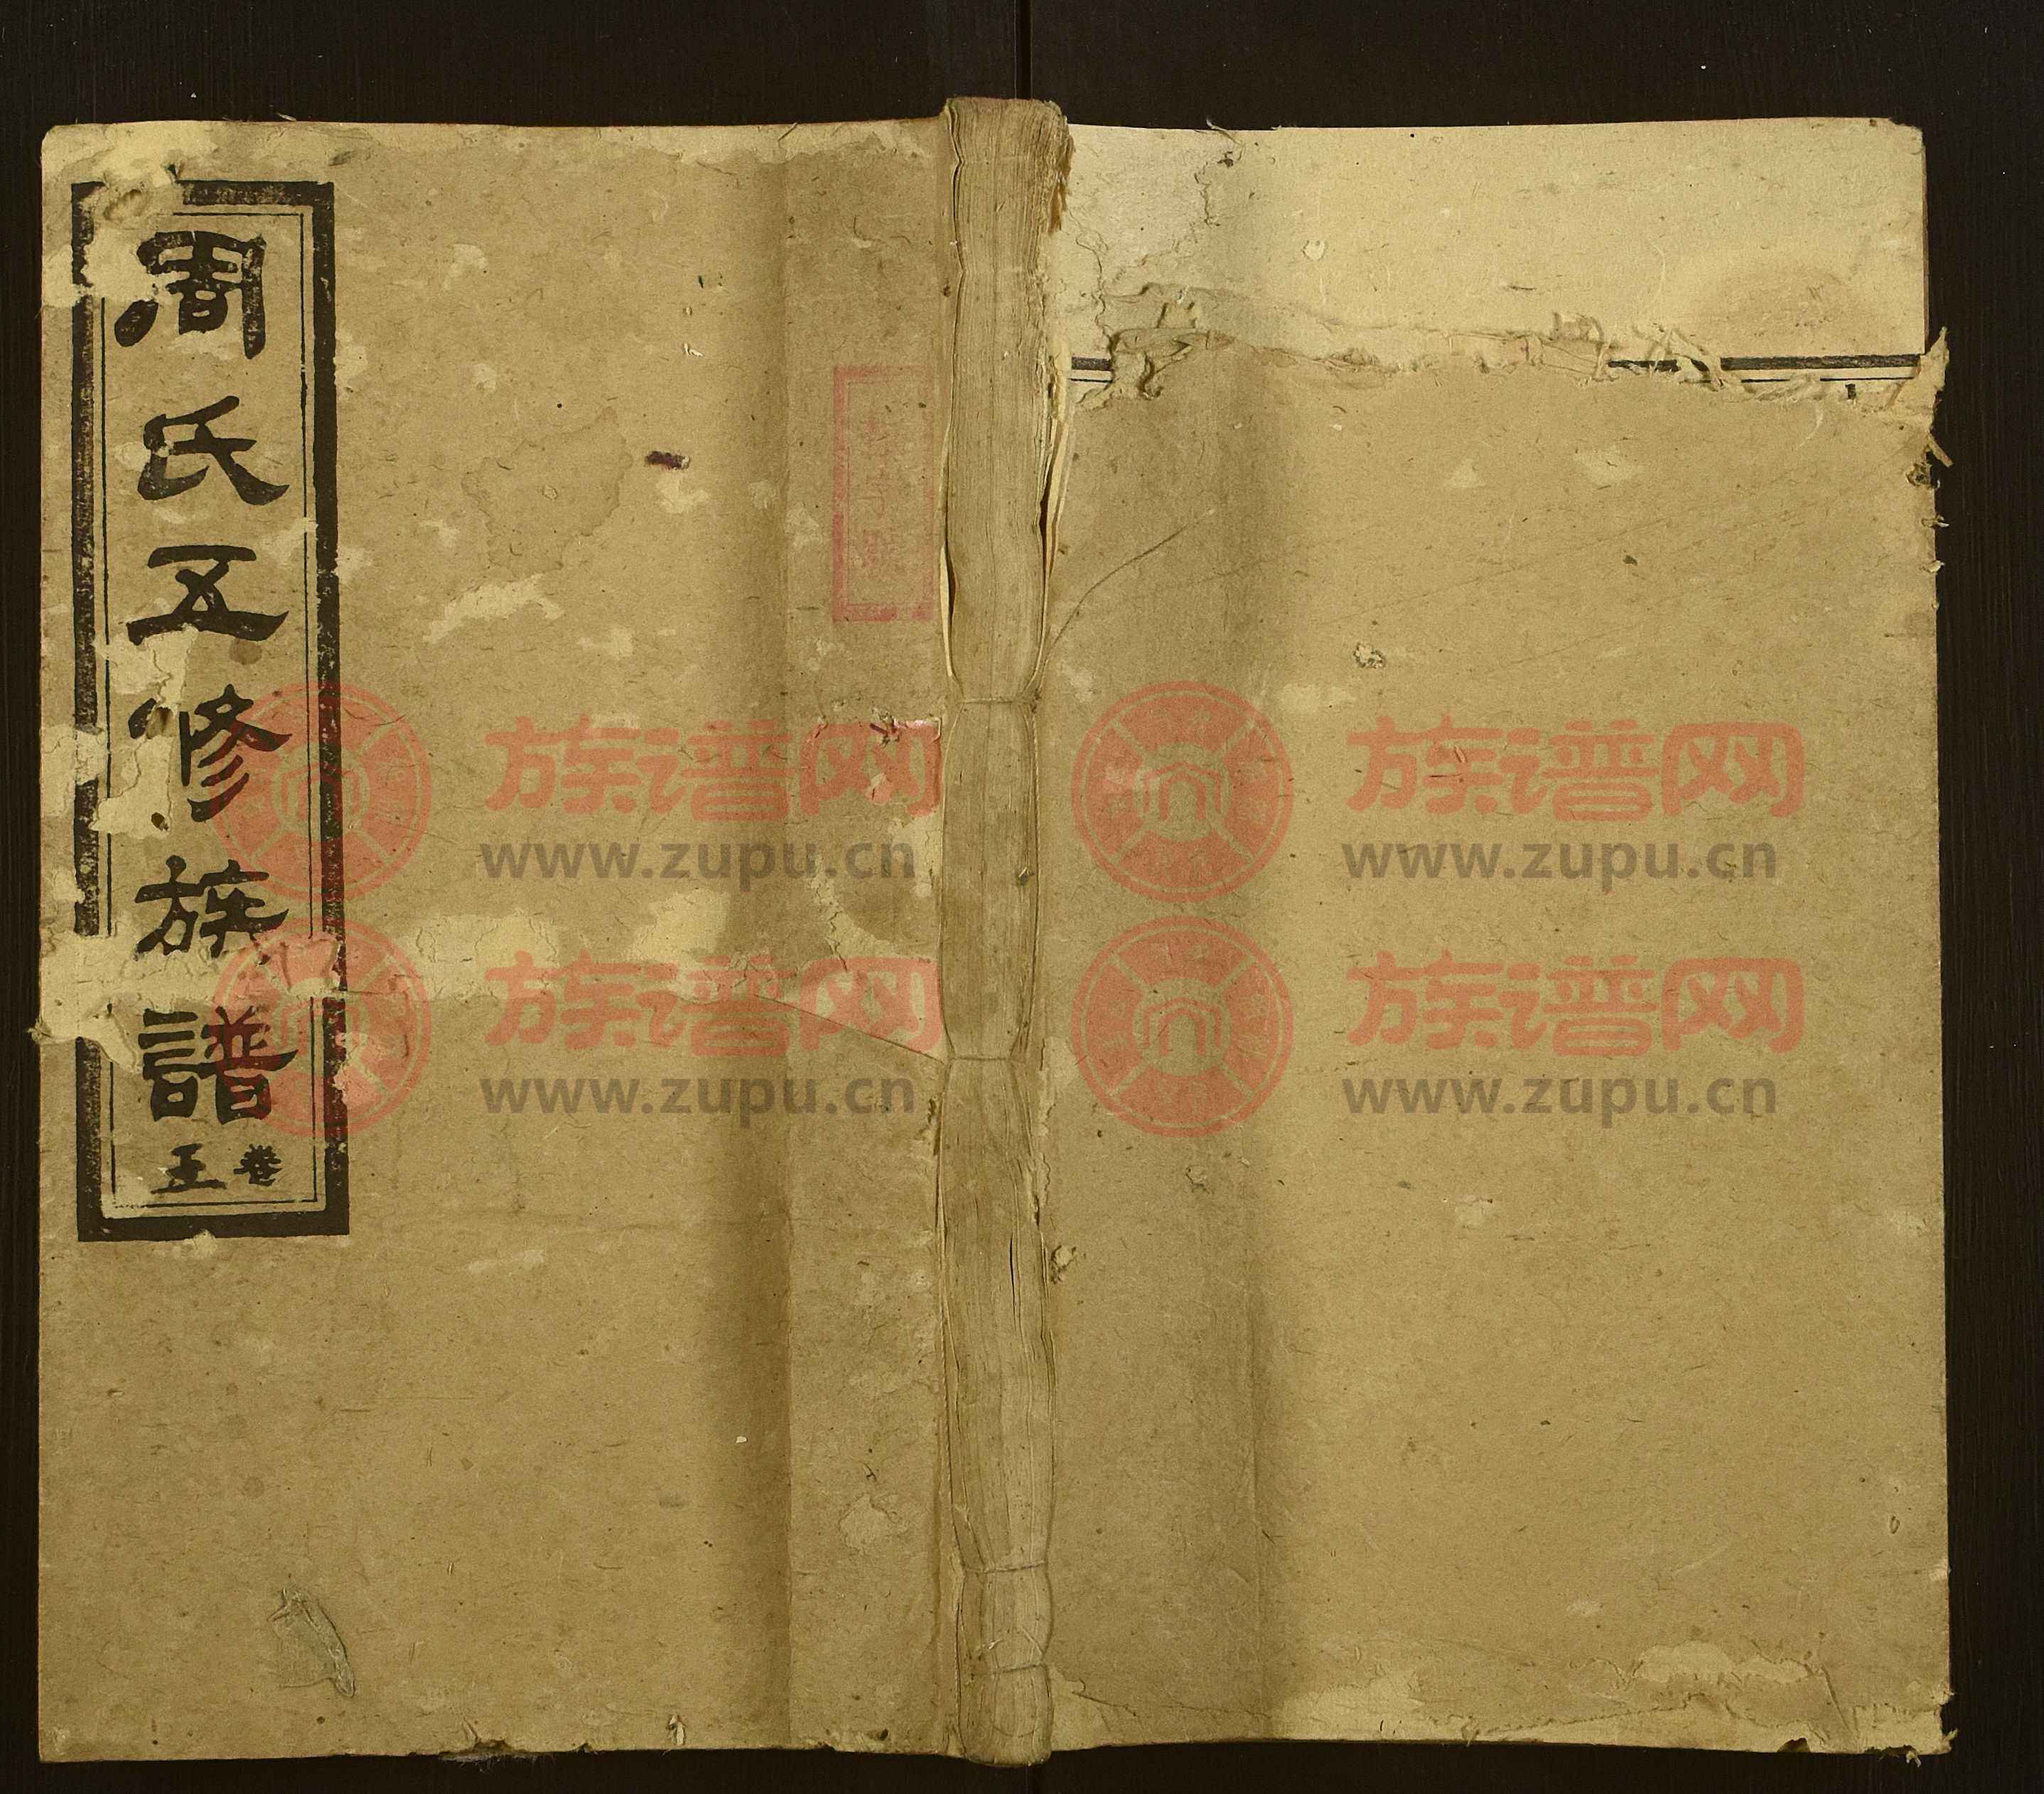 周氏五修族譜
卷五
族谱网
www.zupu.cn
族谱网
www.zupu.cn
族谱网
www.zupu.cn
族谱网
www.zupu.cn